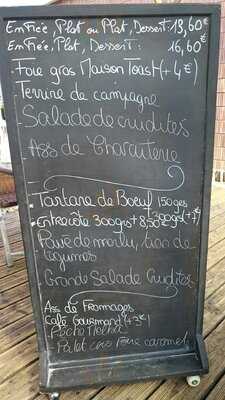 Entrée, Plat ou Plat, Dessert 13,60€
Entrée, Plat, Dessert: 16,60€
Foie gras Maison Toast (+4€)
Terrine de campagne
Salade de crudités
Ass de Charcuterie
Tartare de Boeuf 150grs
Entrecôte 300grs + 8,50€
Pavé de merlu,
légumes
Grande Salade Crudités
Ass de Fromages
Café Gourmand (+3€)
Palet Poire caramel